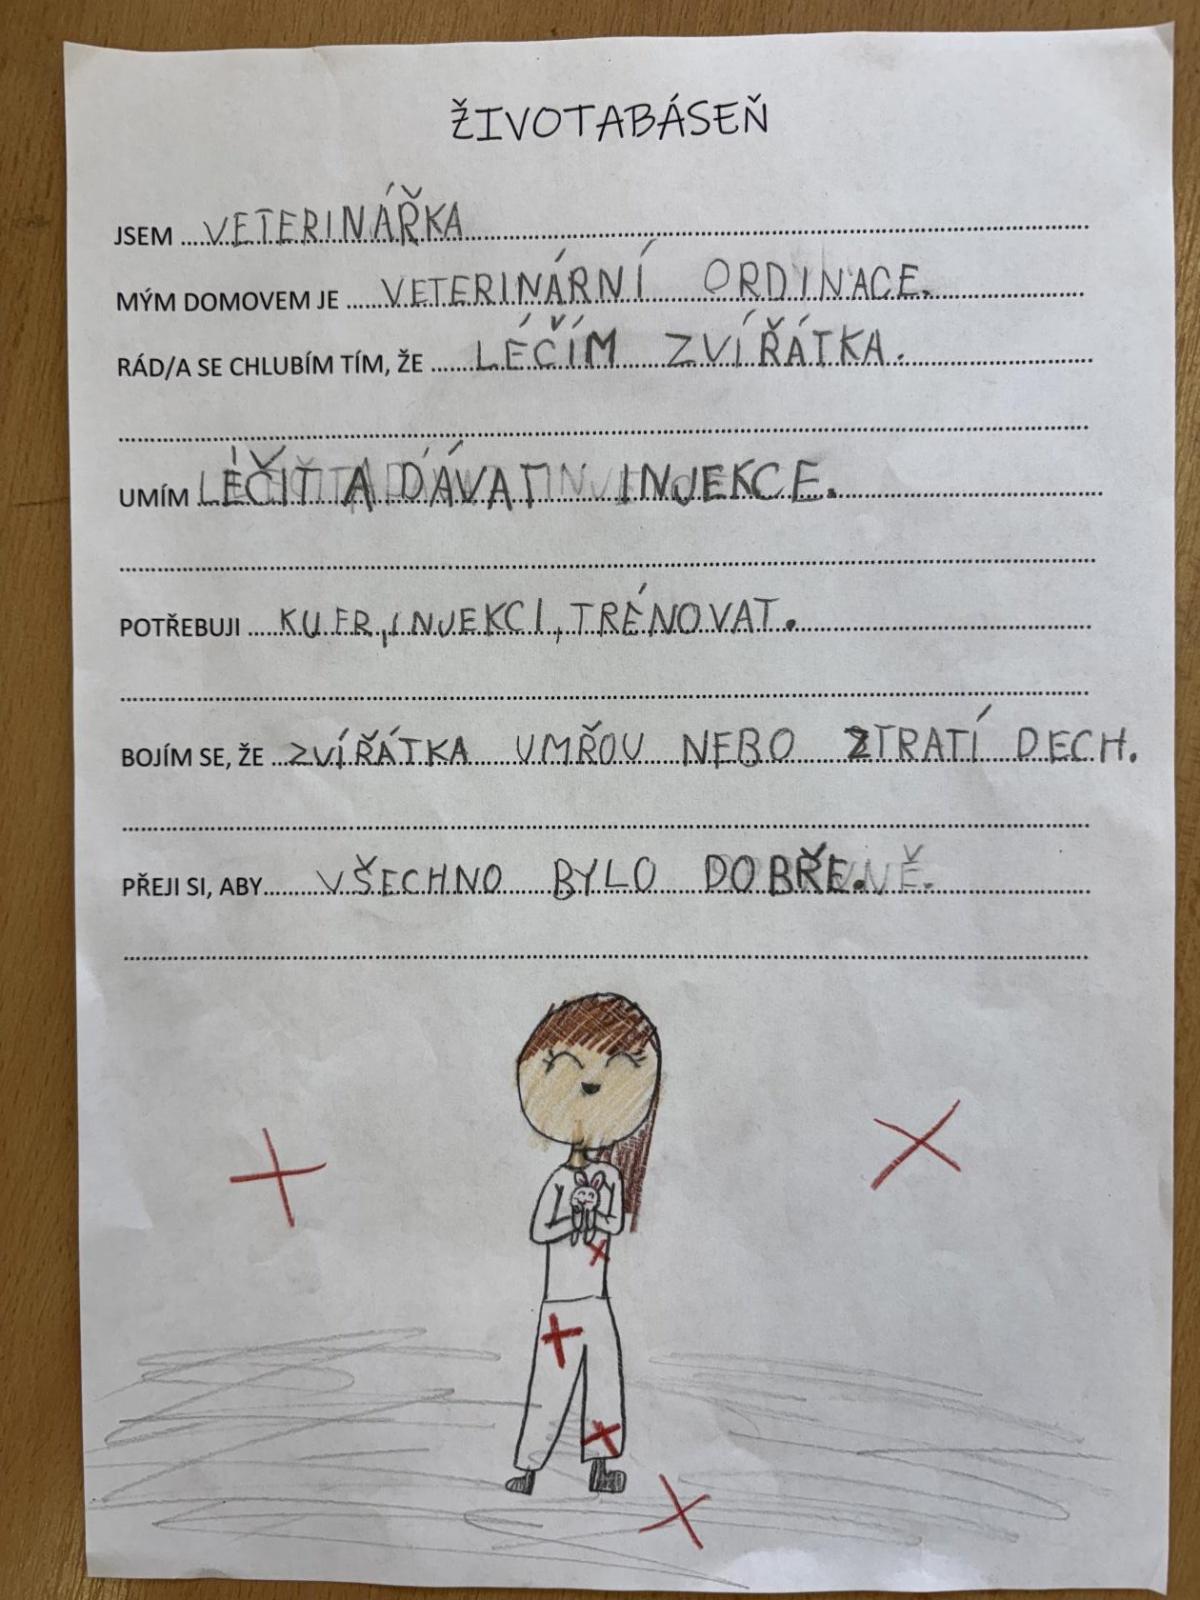 ŽIVOTABÁSEŇ
JSEM VETERINÁŘKA
MÝM DOMOVEM JE VETERINÁRNÍ ORDINACE.
RÁD/A SE CHLUBÍM TÍM, ŽE LÉČÍM ZVÍŘÁTKA.
UMÍM LÉČIT A DÁVAT INJEKCE.
POTŘEBUJI KUFR, INJEKCI, TRÉNOVAT.
BOJÍM SE, ŽE ZVÍŘÁTKA UMŘOU NEBO ZTRATÍ DECH.
PŘEJI SI, ABY VŠECHNO BYLO DOBŘE.